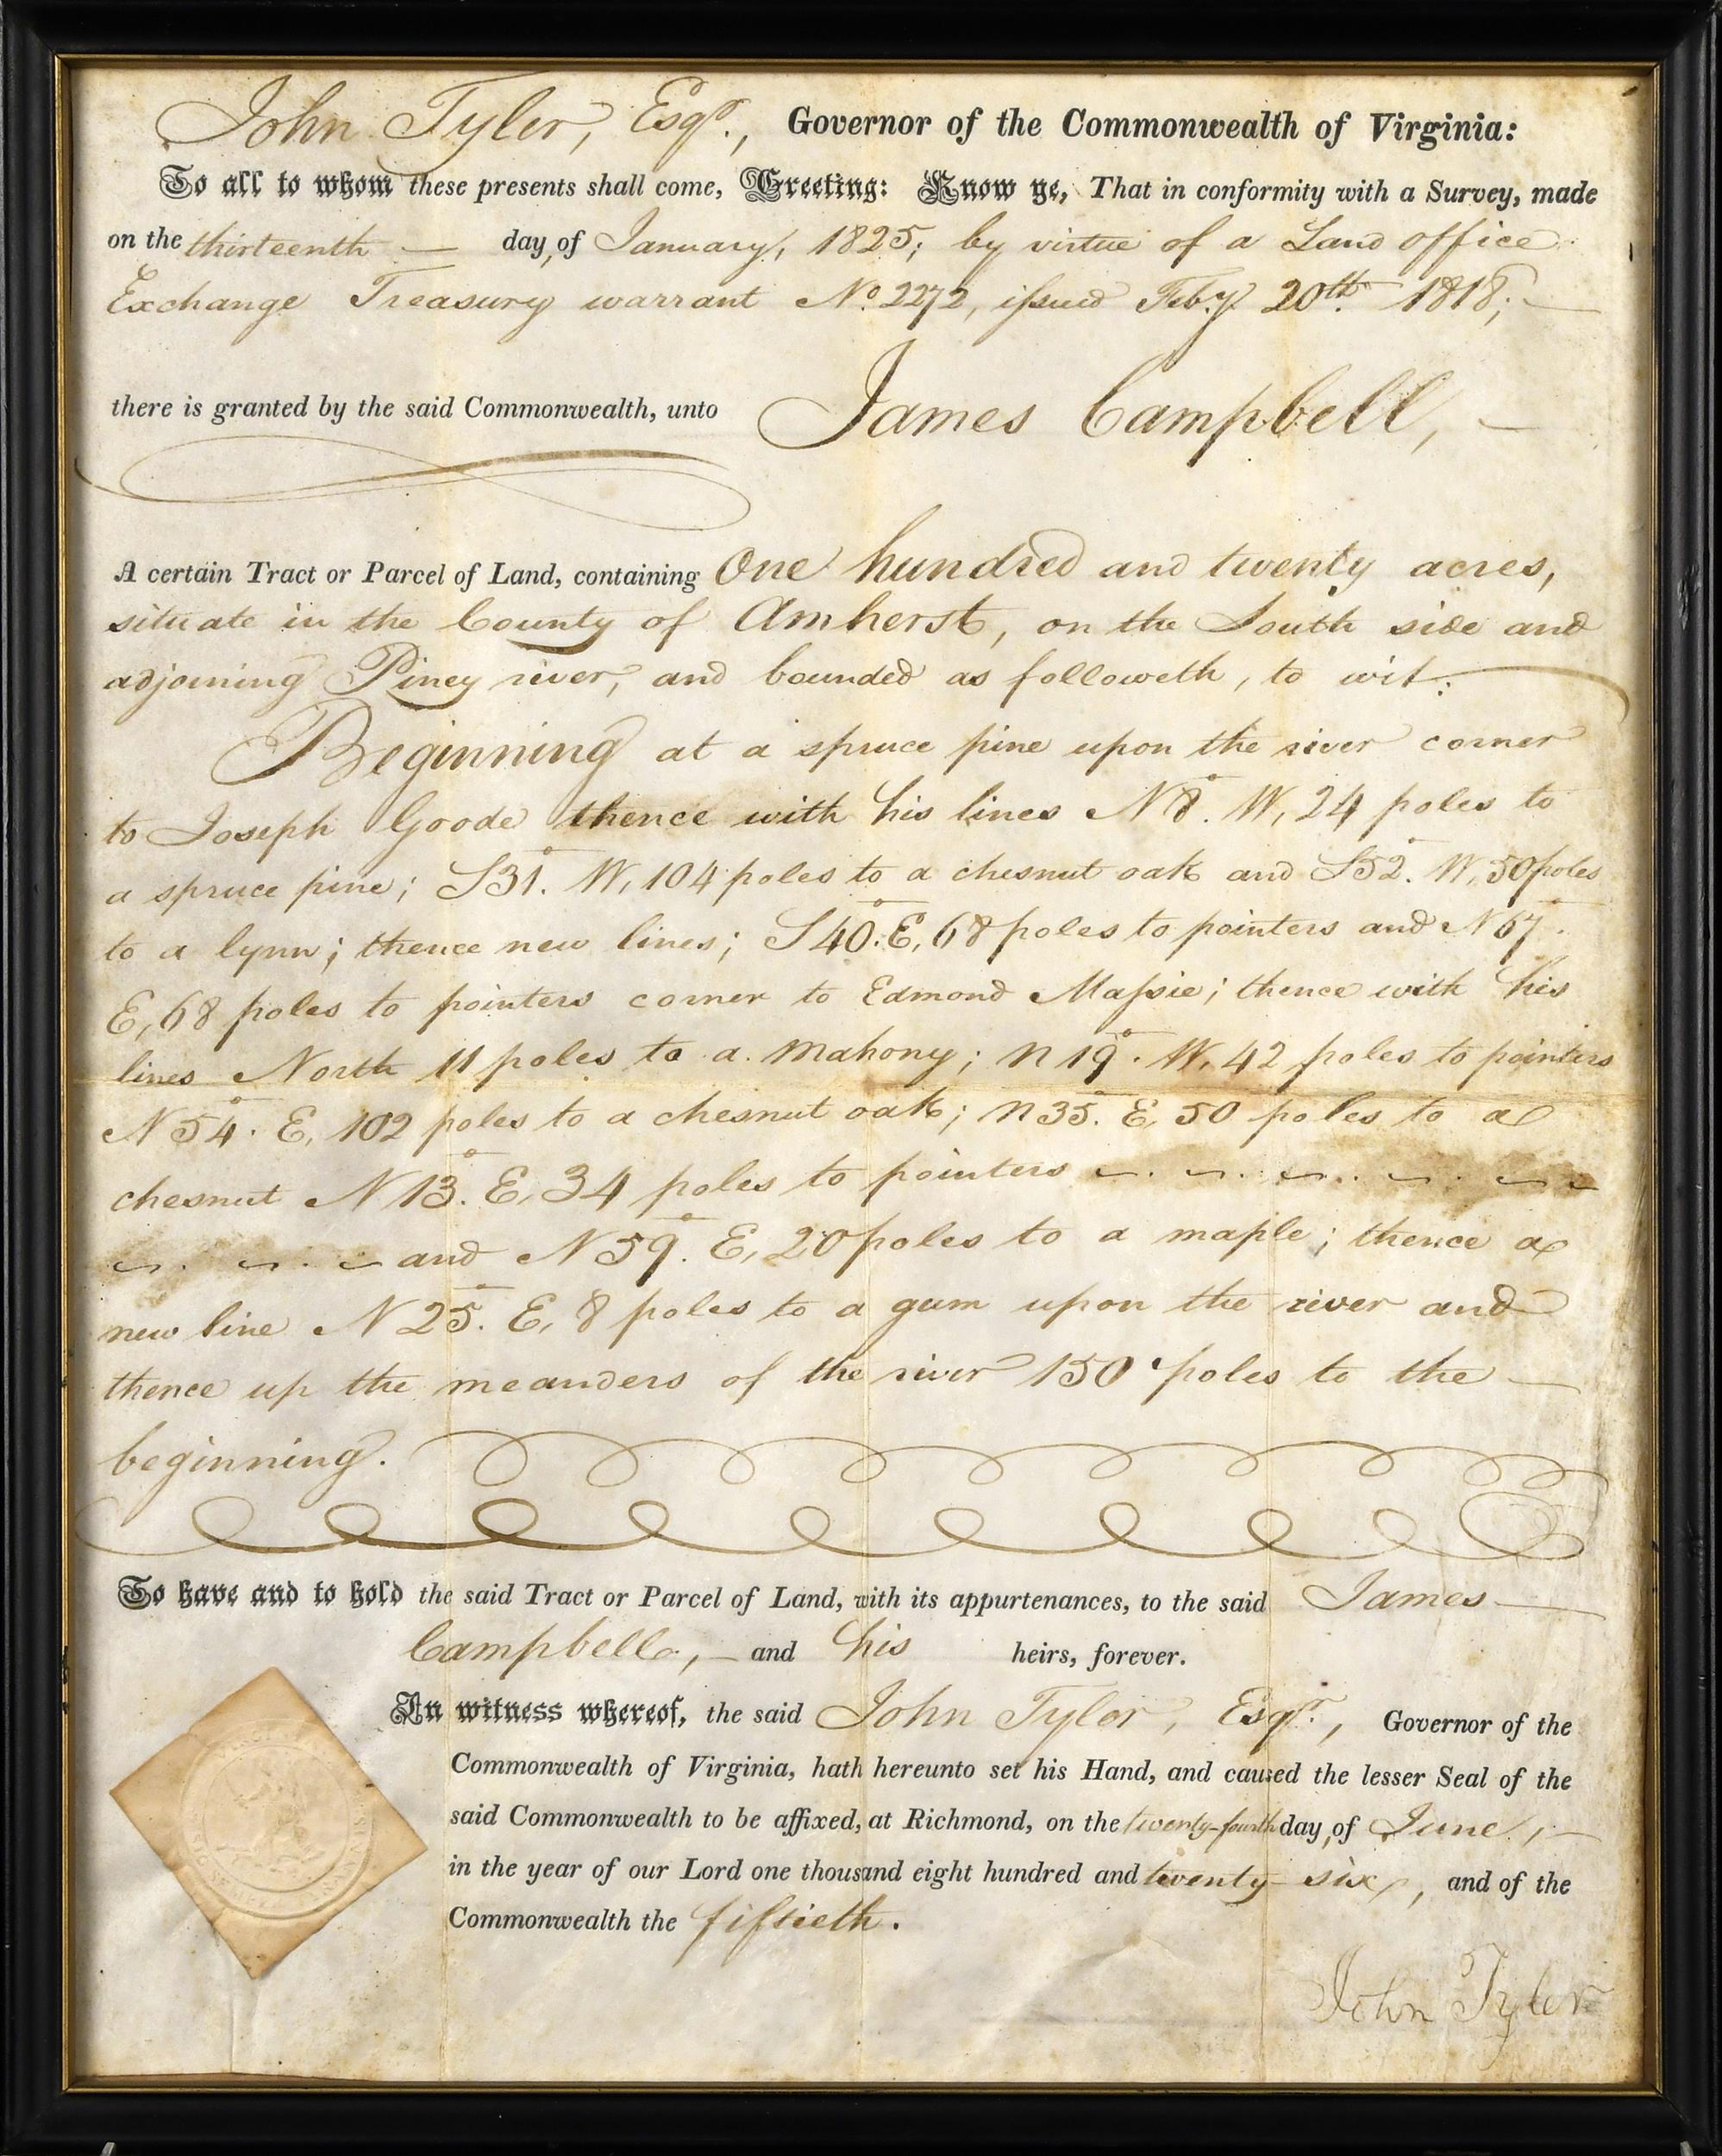 John Tyler, Esqr., Governor of the Commonwealth of Virginia:
To all to whom these presents shall come, Greeting: Know ye, That in conformity with a Survey, made
on the thirteenth — day of January, 1825; by virtue of a Land office
Exchange Treasury warrant No. 2272, issued Feby. 20th. 1818; —
there is granted by the said Commonwealth, unto James Campbell, —
A certain Tract or Parcel of Land, containing One hundred and twenty acres,
situate in the County of Amherst, on the South side and
adjoining Piney river, and bounded as followeth, to wit:
Beginning at a spruce pine upon the river corner
to Joseph Goode thence with his lines N 8°. W, 24 poles to
a spruce pine; S 31°. W, 104 poles to a chesnut oak and S 52°. W, 50 poles
to a lynn; thence new lines; S 40°. E, 68 poles to pointers and N 67°.
E, 68 poles to pointers corner to Edmond Massie; thence with his
lines North 11 poles to a. mahony; N 19°. W, 42 poles to pointers
N 54°. E, 102 poles to a chesnut oak; N 35°. E, 50 poles to a
chesnut N 13°. E, 34 poles to pointers
and N 59°. E, 20 poles to a maple; thence a
new line N 25°. E, 8 poles to a gum upon the river and
thence up the meanders of the river 150 poles to the —
beginning.
To have and to hold the said Tract or Parcel of Land, with its appurtenances, to the said James —
Campbell, — and his heirs, forever.
In witness whereof, the said John Tyler, Esqr., Governor of the
Commonwealth of Virginia, hath hereunto set his Hand, and caused the lesser Seal of the
said Commonwealth to be affixed, at Richmond, on the twenty-fourth day of June, —
in the year of our Lord one thousand eight hundred and twenty six, and of the
Commonwealth the fiftieth.
John Tyler